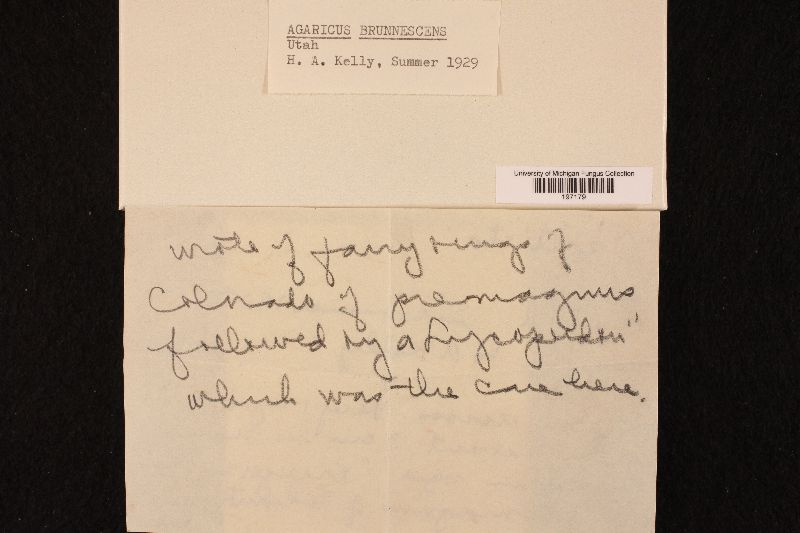 AGARICUS BRUNNESCENS
Utah
H. A. Kelly, Summer 1929
University of Michigan Fungus Collection
197179
wrote of fairy rings of
Colorado of
followed by a Lycoperdon"
which was the case here.